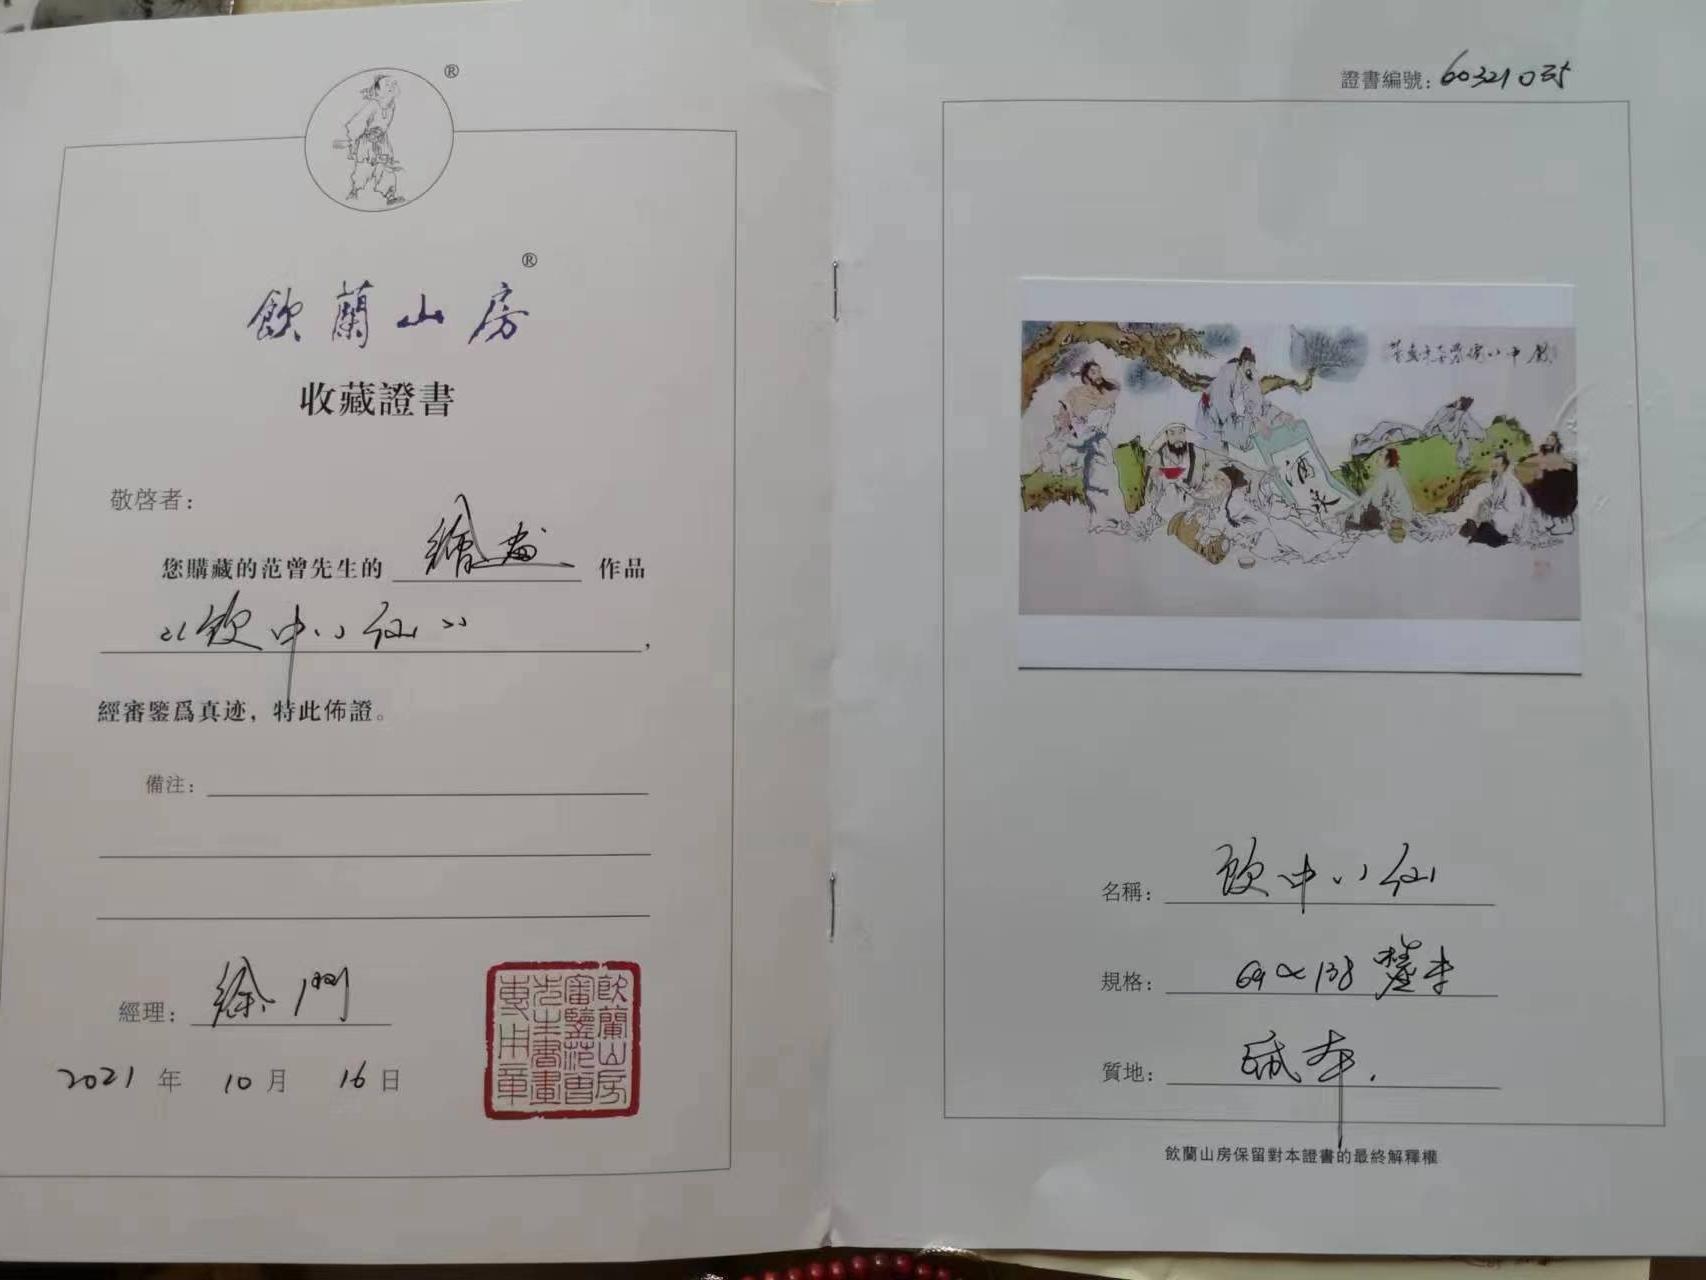 ®
飲蘭山房®
收藏證書
敬啓者：
您購藏的范曾先生的 繪畫 作品
《飲中八仙》，
經審鑒爲真迹，特此佈證。
備注：
經理：徐
2021 年 10 月 16 日
飲蘭山房
審鑒范曾
先生書畫
專用章
證書編號：603210
飲中八仙
酒
名稱：飲中八仙
規格：69×138 釐米
質地：紙本
飲蘭山房保留對本證書的最終解釋權